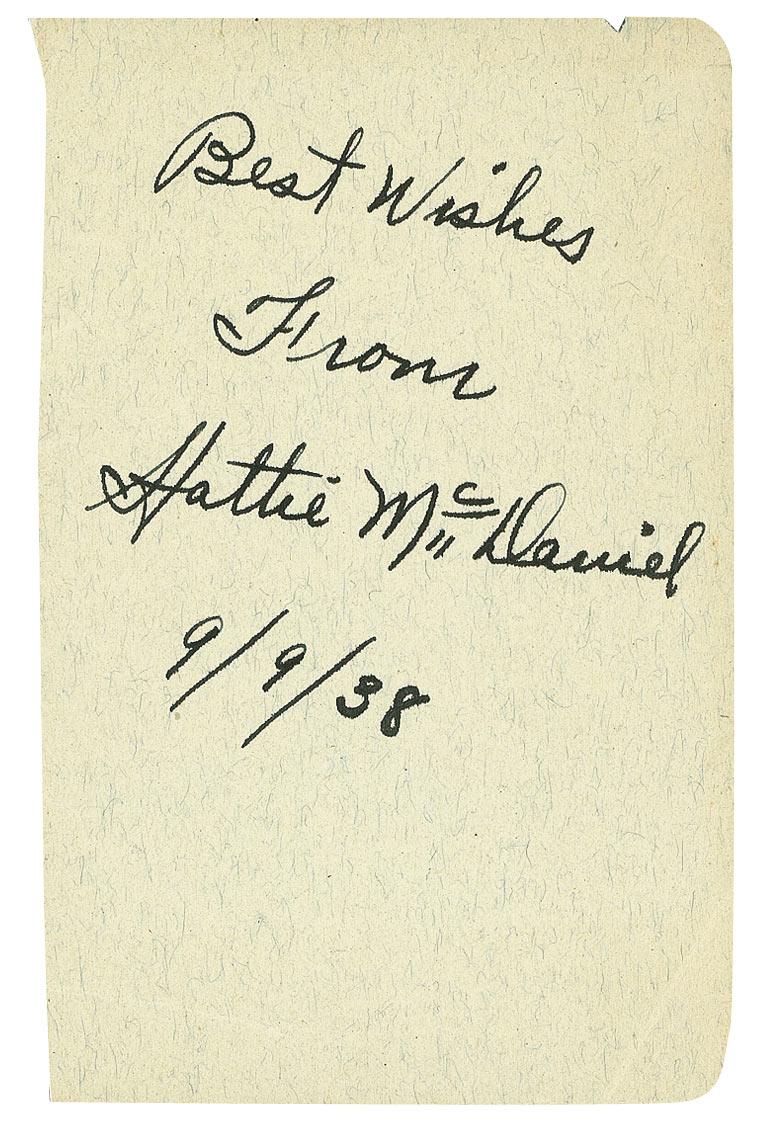 Best Wishes
From
Hattie McDaniel
9/9/38